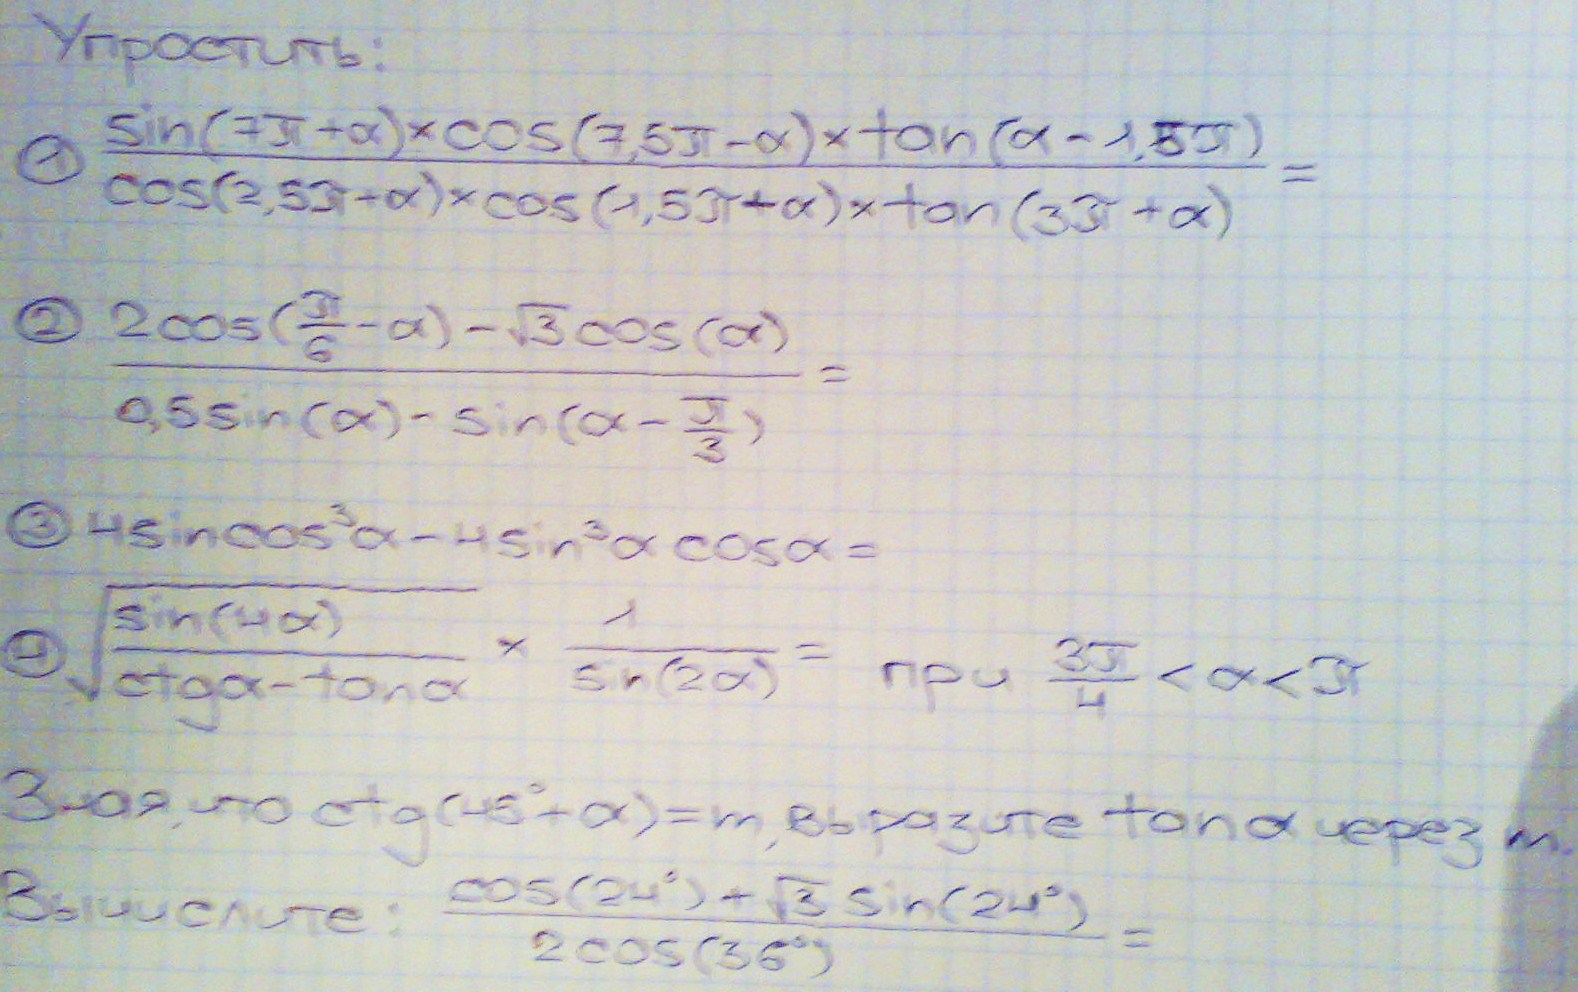 Упростить:
① sin(7π+α)×cos(7,5π-α)×tan(α-1,5π)
cos(2,5π+α)×cos(1,5π+α)×tan(3π+α) =
② 2cos(π/6-α)-√3cos(α)
0,5sin(α)-sin(α-π/3) =
③ 4sincos³α-4sin³α cosα=
④ √(sin(4α)/(ctgα-tanα)) × 1/sin(2α) = при 3π/4 <α<π
Зная, что ctg(45°+α)=m, выразите tanα через m.
Вычислите: cos(24°)+√3 sin(24°)
2cos(36°) =